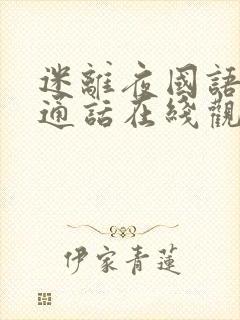 迷離夜國語
通話在綫觀
伊家青蓮